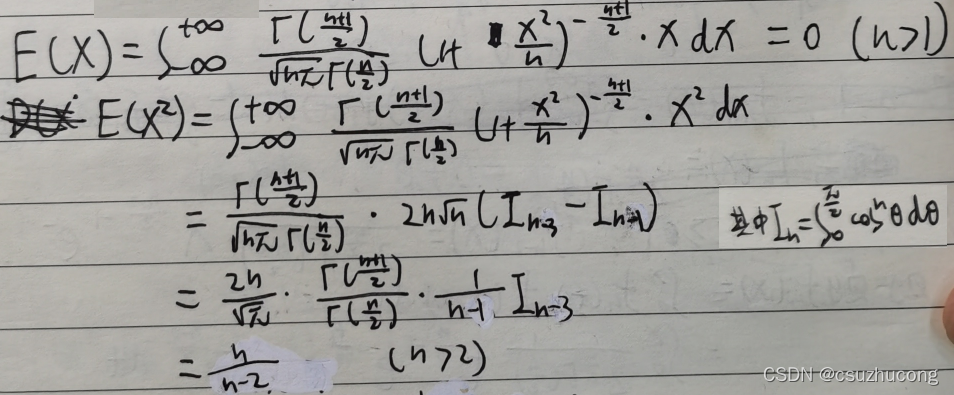 E(X) = ∫_{-∞}^{+∞} \frac{Γ(\frac{n+1}{2})}{\sqrt{nπ} Γ(\frac{n}{2})} (1+ \frac{x^2}{n})^{-\frac{n+1}{2}} · x dx = 0 (n>1)
E(X^2) = ∫_{-∞}^{+∞} \frac{Γ(\frac{n+1}{2})}{\sqrt{nπ} Γ(\frac{n}{2})} (1+ \frac{x^2}{n})^{-\frac{n+1}{2}} · x^2 dx
= \frac{Γ(\frac{n+1}{2})}{\sqrt{nπ} Γ(\frac{n}{2})} · 2n\sqrt{n} (I_{n-3} - I_{n-1}) 其中 I_n = ∫_0^{\frac{π}{2}} cos^n θ dθ
= \frac{2n}{\sqrt{π}} · \frac{Γ(\frac{n+1}{2})}{Γ(\frac{n}{2})} · \frac{1}{n-1} I_{n-3}
= \frac{n}{n-2} (n>2)
CSDN @csuzhucong